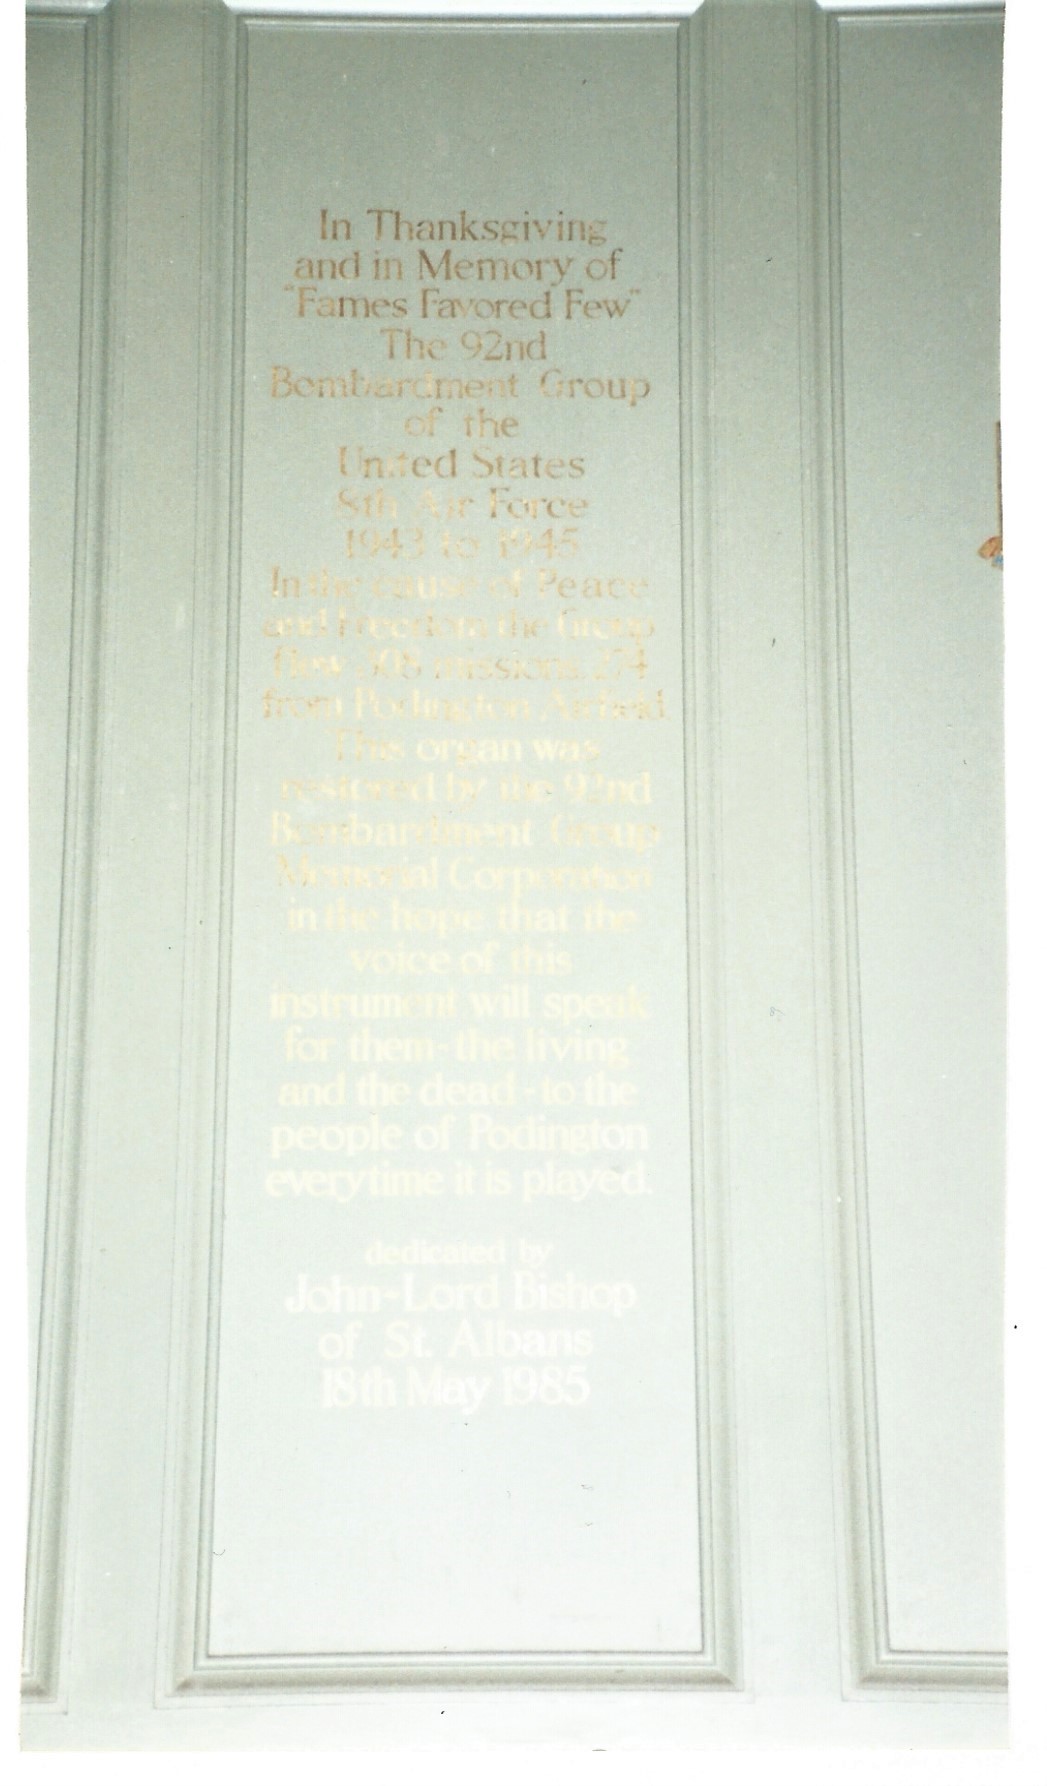 In Thanksgiving
and in Memory of
"Fames Favored Few"
The 92nd
Bombardment Group
of the
United States
8th Air Force
1943 to 1945
In the cause of Peace
and Freedom the Group
flew 308 missions, 274
from Podington Airfield
This organ was
restored by the 92nd
Bombardment Group
Memorial Corporation
in the hope that the
voice of this
instrument will speak
for them-the living
and the dead-to the
people of Podington
everytime it is played.
dedicated by
John-Lord Bishop
of St. Albans
18th May 1985